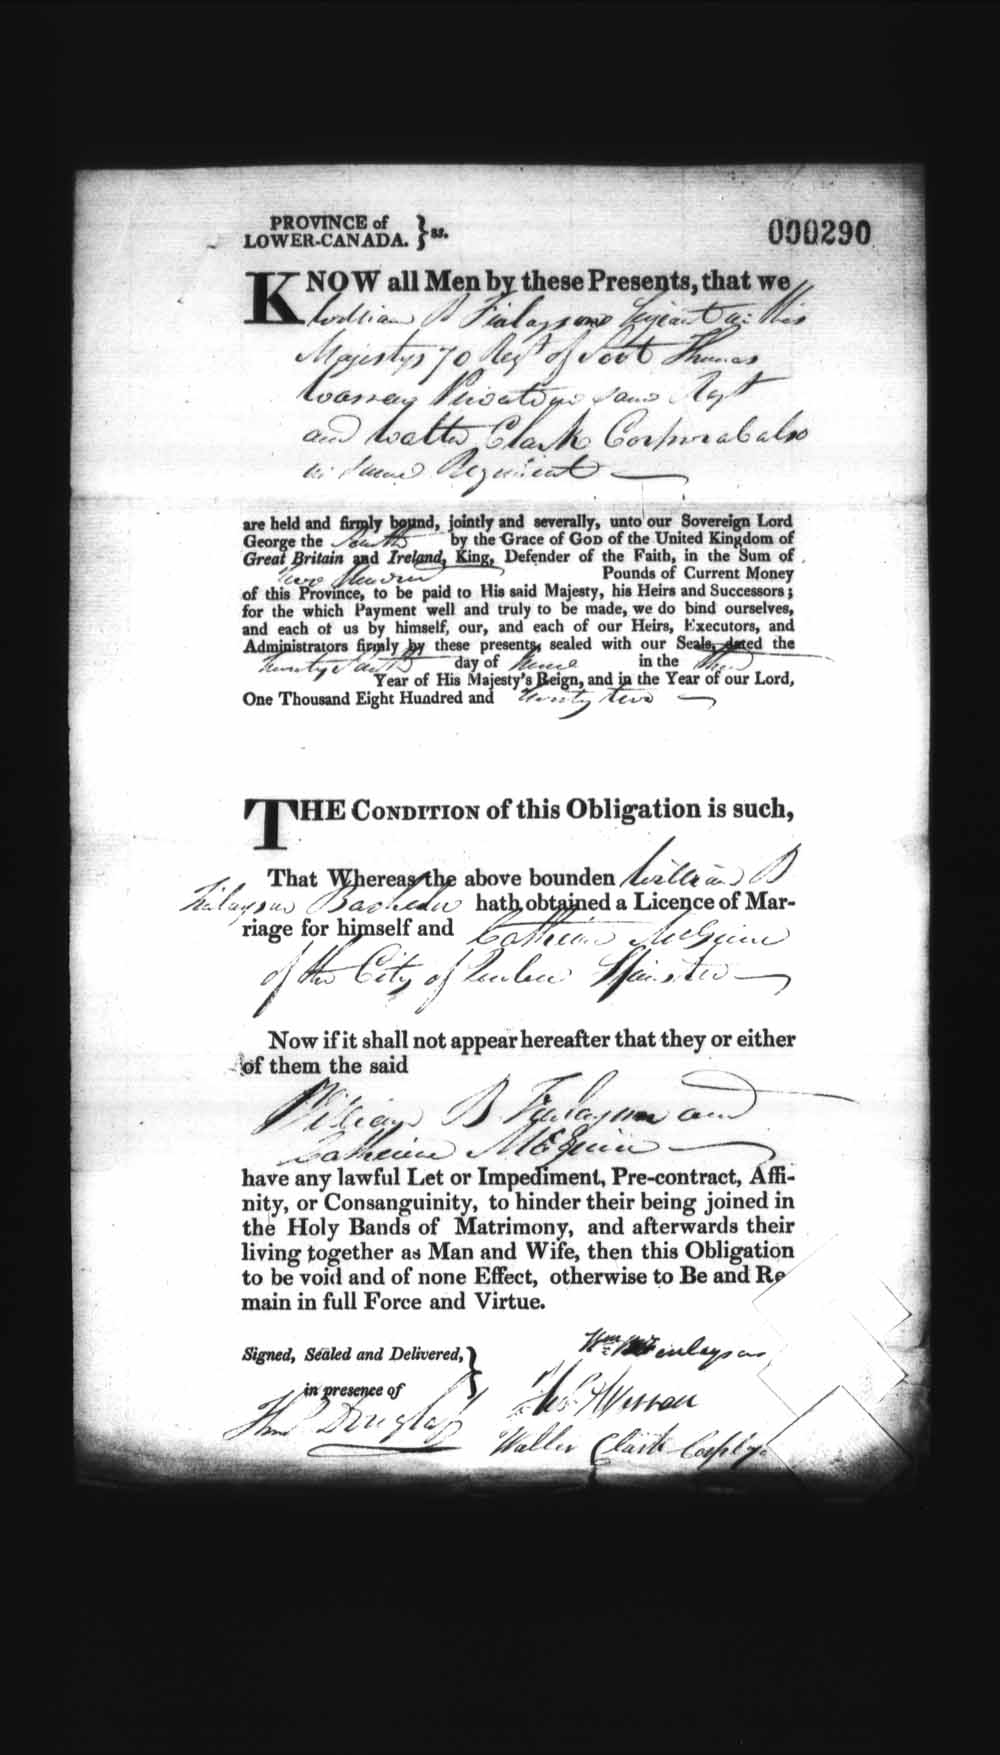 PROVINCE of
LOWER-CANADA. } ss.
000290
KNOW all Men by these Presents, that we
William B Finlayson Serjeant in His
Majestys 70 Regt of Foot Thomas
Private in same Regt
and Walter Clark Corporal also
in same Regiment
are held and firmly bound, jointly and severally, unto our Sovereign Lord
George the Fourth by the Grace of GOD of the United Kingdom of
Great Britain and Ireland, King, Defender of the Faith, in the Sum of
Two Hundred Pounds of Current Money
of this Province, to be paid to His said Majesty, his Heirs and Successors;
for the which Payment well and truly to be made, we do bind ourselves,
and each of us by himself, our, and each of our Heirs, Executors, and
Administrators firmly by these presents, sealed with our Seals, dated the
Twenty fourth day of June in the Third
Year of His Majesty's Reign, and in the Year of our Lord,
One Thousand Eight Hundred and Twenty two
THE CONDITION of this Obligation is such,
That Whereas the above bounden William B
Finlayson Bachelor hath obtained a Licence of Mar-
riage for himself and Catherine McGuire
of the City of Quebec Spinster
Now if it shall not appear hereafter that they or either
of them the said
William B Finlayson and
Catherine McGuire
have any lawful Let or Impediment, Pre-contract, Affi-
nity, or Consanguinity, to hinder their being joined in
the Holy Bands of Matrimony, and afterwards their
living together as Man and Wife, then this Obligation
to be void and of none Effect, otherwise to Be and Re
main in full Force and Virtue.
Signed, Sealed and Delivered, }
in presence of
Wm Finlayson
Thos
Thos Douglass
Walter Clark Corpl